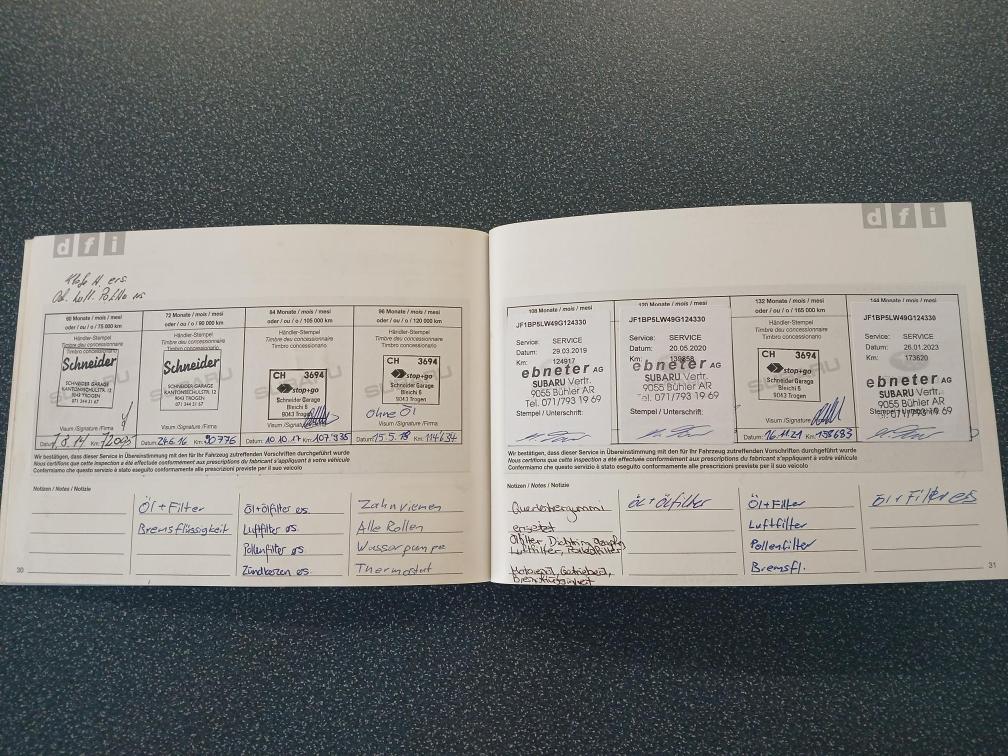 dfi
ers.
60 Monate / mois / mesi
oder / ou / o / 75 000 km
Händler-Stempel
Timbre deu concessionnaire
Timbro concessionario
Schneider
SCHNEIDER GARAGE
KANTONSSCHULSTR. 12
9043 TROGEN
071 344 31 67
Visum /Signature /Firma
Datum: Km:
72 Monate / mois / mesi
oder / ou / o / 90 000 km
Händler-Stempel
Timbre deu concessionnaire
Timbro concessionario
Schneider
SCHNEIDER GARAGE
KANTONSSCHULSTR. 12
9043 TROGEN
071 344 31 67
Visum /Signature /Firma
Datum: 24.6.16 Km: 90776
84 Monate / mois / mesi
oder / ou / o / 105 000 km
Händler-Stempel
Timbre deu concessionnaire
Timbro concessionario
CH 3694
stop+go
Schneider Garage
Bleichi 6
9043 Trogen
Visum /Signature
Datum: 10.10.17 Km: 107'935
96 Monate / mois / mesi
oder / ou / o / 120 000 km
Händler-Stempel
Timbre deu concessionnaire
Timbro concessionario
CH 3694
stop+go
Schneider Garage
Bleichi 6
9043 Trogen
Ohne Öl
Visum /Signature /Firma
Datum: 15.5.18 Km: 114'634
Wir bestätigen, dass dieser Service in Übereinstimmung mit den für Ihr Fahrzeug zutreffenden Vorschriften durchgeführt wurde
Nous certifions que cette inspection a été effectuée conformément aux prescriptions du fabricant s'appliquent à votre véhicule
Confermiamo che questo servizio è stato eseguito conformemente alle prescrizioni previste per il suo veicolo
Notizen / Notes / Notizie
Öl+Filter
Bremsflüssigkeit
Öl+Ölfilter ers.
Luftfilter ers.
Pollenfilter ers
Zündkerzen ers.
Zahnriemen
Alle Rollen
Wasserpumpe
Thermostat
30
dfi
108 Monate / mois / mesi
JF1BP5LW49G124330
Service: SERVICE
Datum: 29.03.2019
Km: 124917
ebneter AG
SUBARU Vertr.
9055 Bühler AR
Tel. 071/793 19 69
Stempel / Unterschrift:
120 Monate / mois / mesi
JF1BP5LW49G124330
Service: SERVICE
Datum: 20.05.2020
Km: 139858
ebneter AG
SUBARU Vertr.
9055 Bühler AR
Tel. 071/793 19 69
Stempel / Unterschrift:
132 Monate / mois / mesi
oder / ou / o / 165 000 km
Händler-Stempel
Timbre deu concessionnaire
Timbro concessionario
CH 3694
stop+go
Schneider Garage
Bleichi 6
9043 Trogen
Visum /Signature
Datum: 16.11.21 Km:
144 Monate / mois / mesi
JF1BP5LW49G124330
Service: SERVICE
Datum: 26.01.2023
Km: 173620
ebneter AG
SUBARU Vertr.
9055 Bühler AR
Tel. 071/793 19 69
Wir bestätigen, dass dieser Service in Übereinstimmung mit den für Ihr Fahrzeug zutreffenden Vorschriften durchgeführt wurde
Nous certifions que cette inspection a été effectuée conformément aux prescriptions du fabricant s'appliquent à votre véhicule
Confermiamo che questo servizio è stato eseguito conformemente alle prescrizioni previste per il suo veicolo
Notizen / Notes / Notizie
ersetzt
Ölfilter,
Luftfilter, Pollenfilter
Öl+Ölfilter
Öl+Filter
Luftfilter
Pollenfilter
Bremsfl.
Öl+Filter ers
31